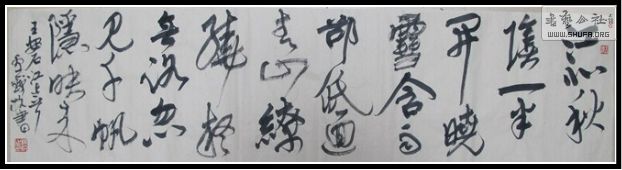 江北秋
陰一半
開曉
雲含雨
却低迴
青山繚
繞疑
無路忽
見千帆
隱映来
王安石江上詩
书艺公社
WWW.SHUFA.ORG